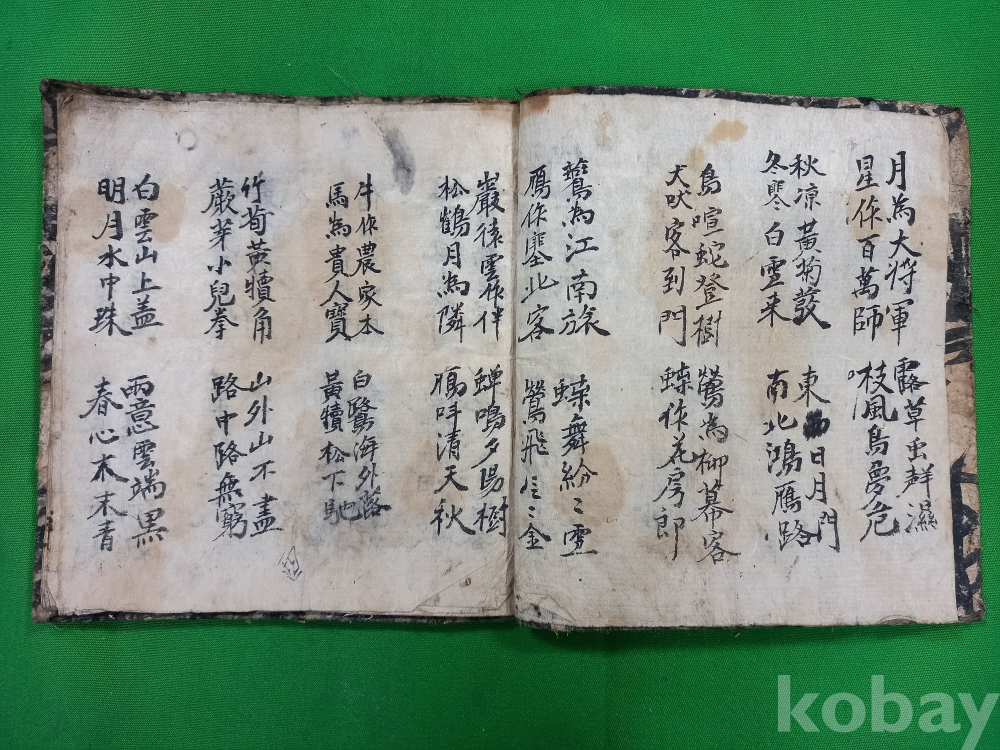 月為大將軍
星作百萬師
露草虫群濕
枝風鳥夢危
秋凉黃菊發
冬寒白雪来
東西日月門
南北鴻雁路
鳥喧蛇登樹
犬吠客到門
鶯為柳幕客
蝶作花房郎
鶯為江南旅
鴈作塞北客
蝶舞紛〻雪
鶯飛片〻金
巖猿雲作伴
松鶴月為隣
蟬鳴夕陽樹
鴈呌清天秋
牛作農家本
馬為貴人寶
白鷺海外落
黃犢松下馳
竹荀黃犢角
蕨芽小兒拳
山外山不盡
路中路無窮
白雲山上盖
明月水中珠
雨意雲端黑
春心木末青
kobay